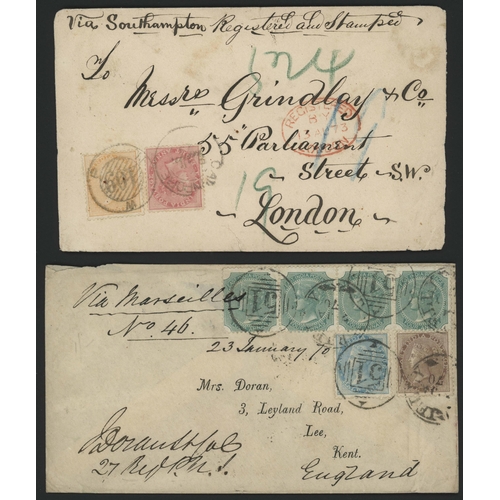 Via Southampton Registered and Stamped
To
Messrs Grindlay & Co
55 Parliament
Street S.W.
London
REGISTERED
Via Marseilles
No. 46
23 January 70
Mrs. Doran,
3, Leyland Road,
Lee,
Kent.
England